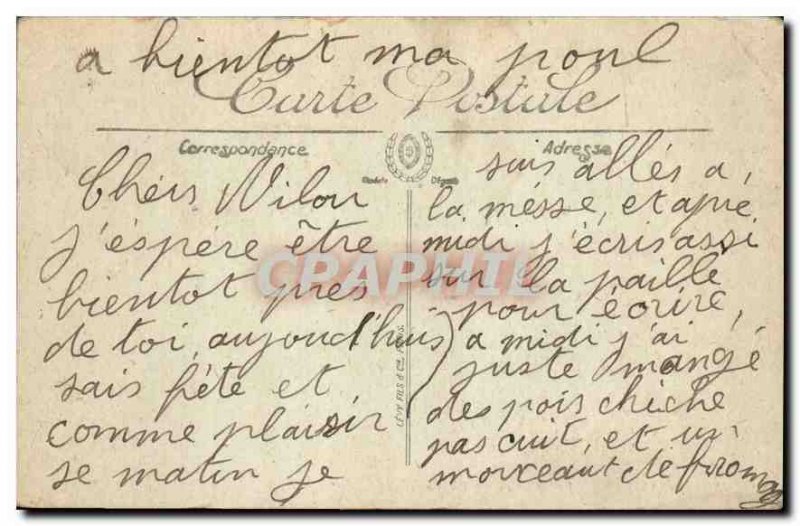 a bientot ma poul
Carte Postale
Correspondance
Adresse
Chérs Nilou
j'éspére être
bientot prés
de toi aujourd'huis
sais fête et
comme plaisir
se matin je
suis allés a
la mésse, et apré
midi j'écris assi
sur la paille
pour écrire,
a midi j'ai
juste mangé
des pois chiche
pas cuit, et un
morceaut de fromag
CPARAMA
LÉVY FILS & Cie, PARIS.